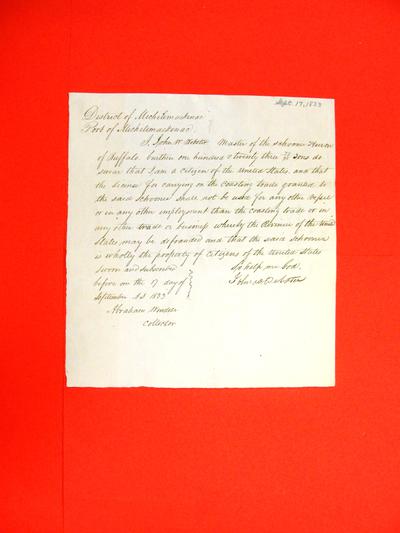 Sept. 17, 1833
District of Michilimackinac
Port of Michilimackinac
I, John W. Webster Master of the schooner Huron
of Buffalo, burthen one hundred & twenty three Tons do
swear that I am a citizen of the United States, and that
the license for carrying on the Coasting trade granted to
the said Schooner shall not be used for any other Vessel
or in any other employment than the coasting trade or in
any other trade or business whereby the Revenue of the United
States may be defrauded and that the said Schooner
is wholly the property of Citizens of the United States
Sworn and subscribed So help me God.
before me the 17 day of John W. Webster
September A.D. 1833
Abraham Wendell
Collector